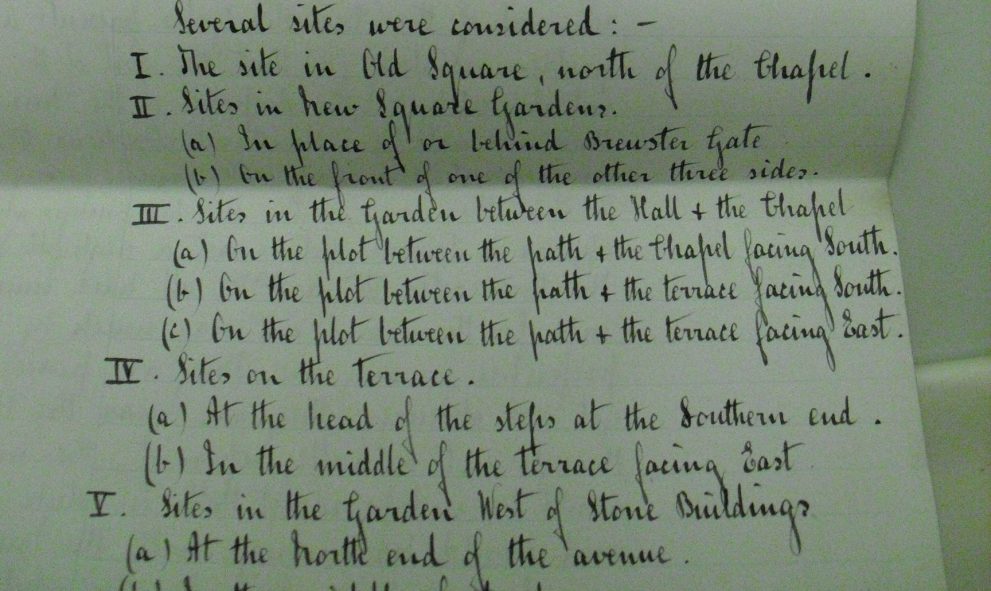 Several sites were considered : -
I. The site in Old Square, north of the Chapel.
II. Sites in New Square Gardens.
(a) In place of or behind Brewster Gate
(b) On the front of one of the other three sides.
III. Sites in the Garden between the Hall + the Chapel
(a) On the plot between the path + the Chapel facing South.
(b) On the plot between the path + the terrace facing South.
(c) On the plot between the path + the terrace facing East.
IV. Sites on the terrace.
(a) At the head of the steps at the Southern end.
(b) In the middle of the terrace facing East
V. Sites in the Garden West of Stone Buildings
(a) At the North end of the avenue.